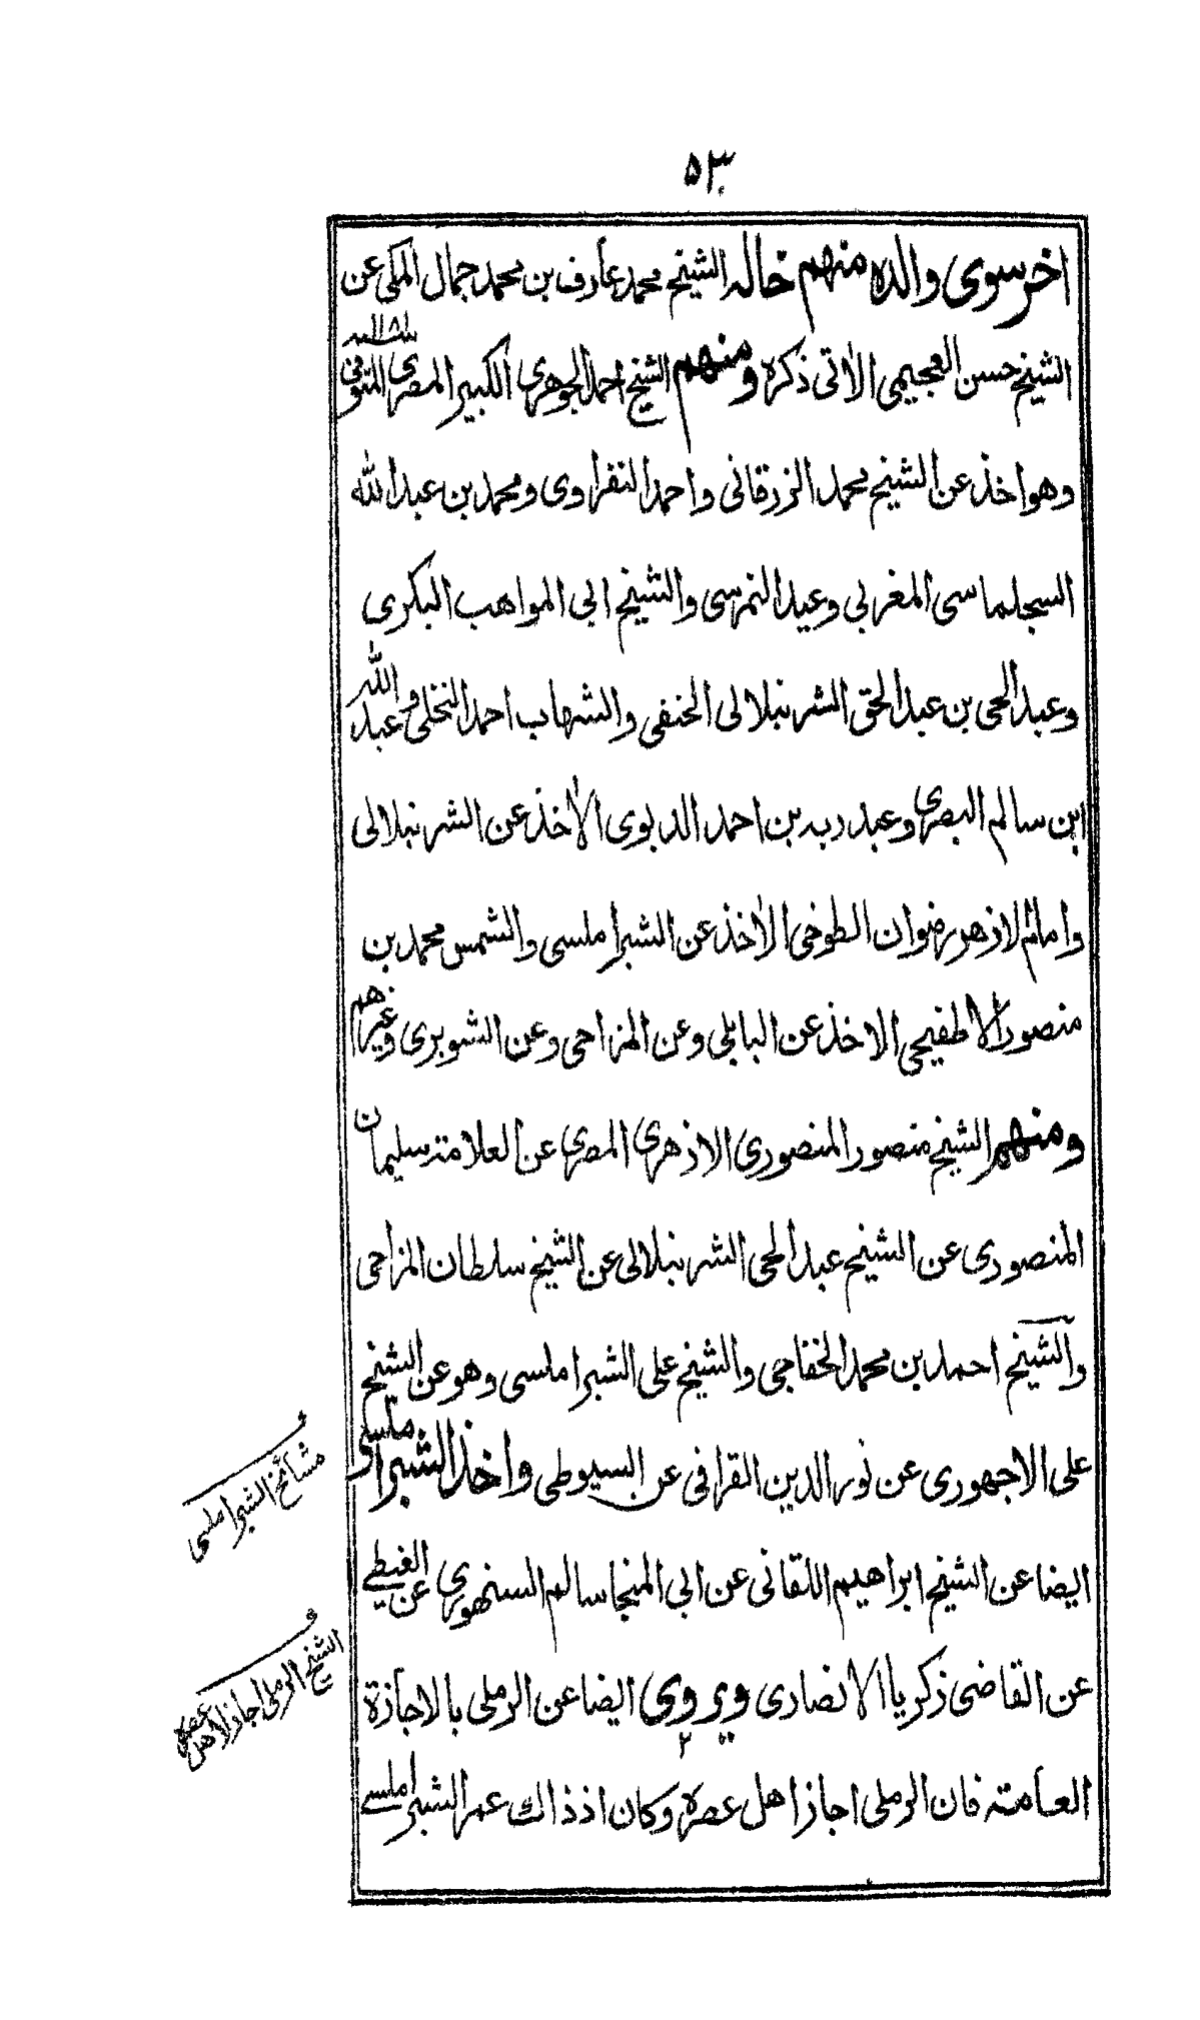 ۵۳
اخر سوى والده منهم خاله الشيخ محمد عارف بن محمد جمال المكي عن
الشيخ حسن العجيمى الاتى ذكره ومنهم الشيخ احمد الجوهرى الكبير المصرى المتوفى
وهو اخذ عن الشيخ محمد الزرقانى واحمد النفراوى ومحمد بن عبد الله
السجلماسى المغربى وعيد النمرسى والشيخ ابى المواهب البكرى
وعبد الحى بن عبد الحق الشرنبلالى الحنفى والشهاب احمد النخلى وعبد الله
ابن سالم البصرى وعبد ربه بن احمد الديوى الاخذ عن الشرنبلالى
وامام الازهر رضوان الطوخى الاخذ عن الشبراملسى والشمس محمد بن
منصور الاطفيحى الاخذ عن البابلى وعن المزاحى وعن الشوبرى وغيرهم
ومنهم الشيخ منصور المنصورى الازهرى المصرى عن العلامة سليمان
المنصورى عن الشيخ عبد الحى الشرنبلالى عن الشيخ سلطان المزاحى
والشيخ احمد بن محمد الخفاجى والشيخ على الشبراملسى وهو عن الشيخ
على الاجهورى عن نور الدين القرافى عن السيوطى واخذ الشبراملسى
ايضا عن الشيخ ابراهيم اللقانى عن ابى المنجا سالم السنهورى عن الغيطى
عن القاضى زكريا الانصارى ويروى ايضا عن الرملى بالاجازة
العامة فان الرملى اجاز اهل عصره وكان اذ ذاك عمر الشبراملسى
مشائخ الشبراملسى
الشيخ الرملى اجاز لاهل عصره